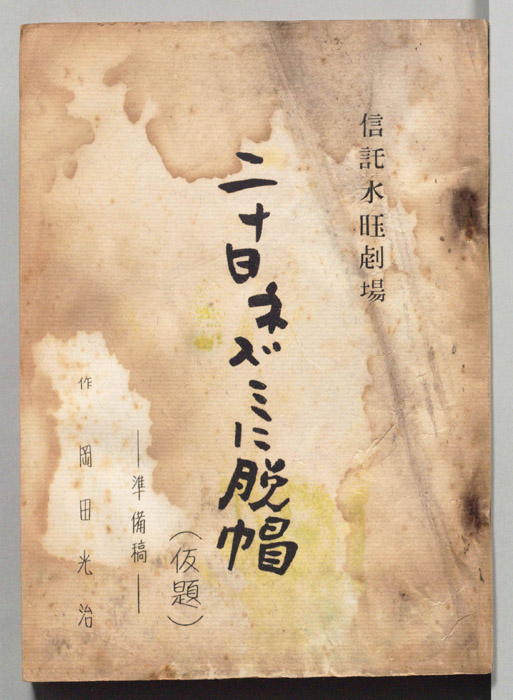 信託水曜劇場
二十日ネズミに脱帽
(仮題)
―準備稿―
作 岡田光治